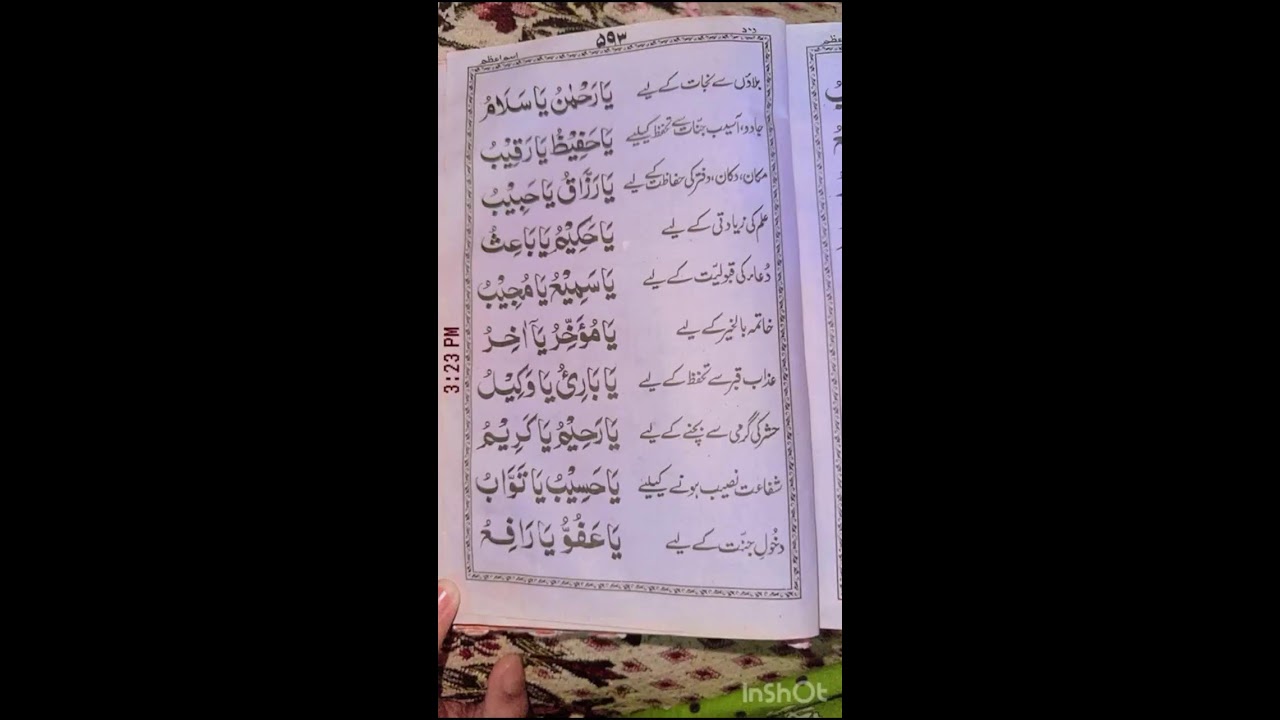 ۵۹۳
اسم اعظم
بلاؤں سے نجات کے لیے یَا رَحْمٰنُ یَا سَلَامُ
جادو، آسیب جنّات سے تحفظ کیلیے یَا حَفِیْظُ یَا رَقِیْبُ
مکان، دکان، دفتر کی حفاظت کے لیے یَا رَزَّاقُ یَا حَبِیْبُ
علم کی زیادتی کے لیے یَا حَکِیْمُ یَا بَاعِثُ
دُعاء کی قبولیّت کے لیے یَا سَمِیْعُ یَا مُجِیْبُ
خاتمہ بالخیر کے لیے یَا مُؤَخِّرُ یَآ اٰخِرُ
عذاب قبر سے تحفظ کے لیے یَا بَارِئُ یَا وَکِیْلُ
حشر کی گرمی سے بچنے کے لیے یَا رَحِیْمُ یَا کَرِیْمُ
شفاعت نصیب ہونے کیلیے یَا حَسِیْبُ یَا تَوَّابُ
دخُولِ جنّت کے لیے یَا عَفُوُّ یَا رَافِعُ
3:23 PM
InShOt